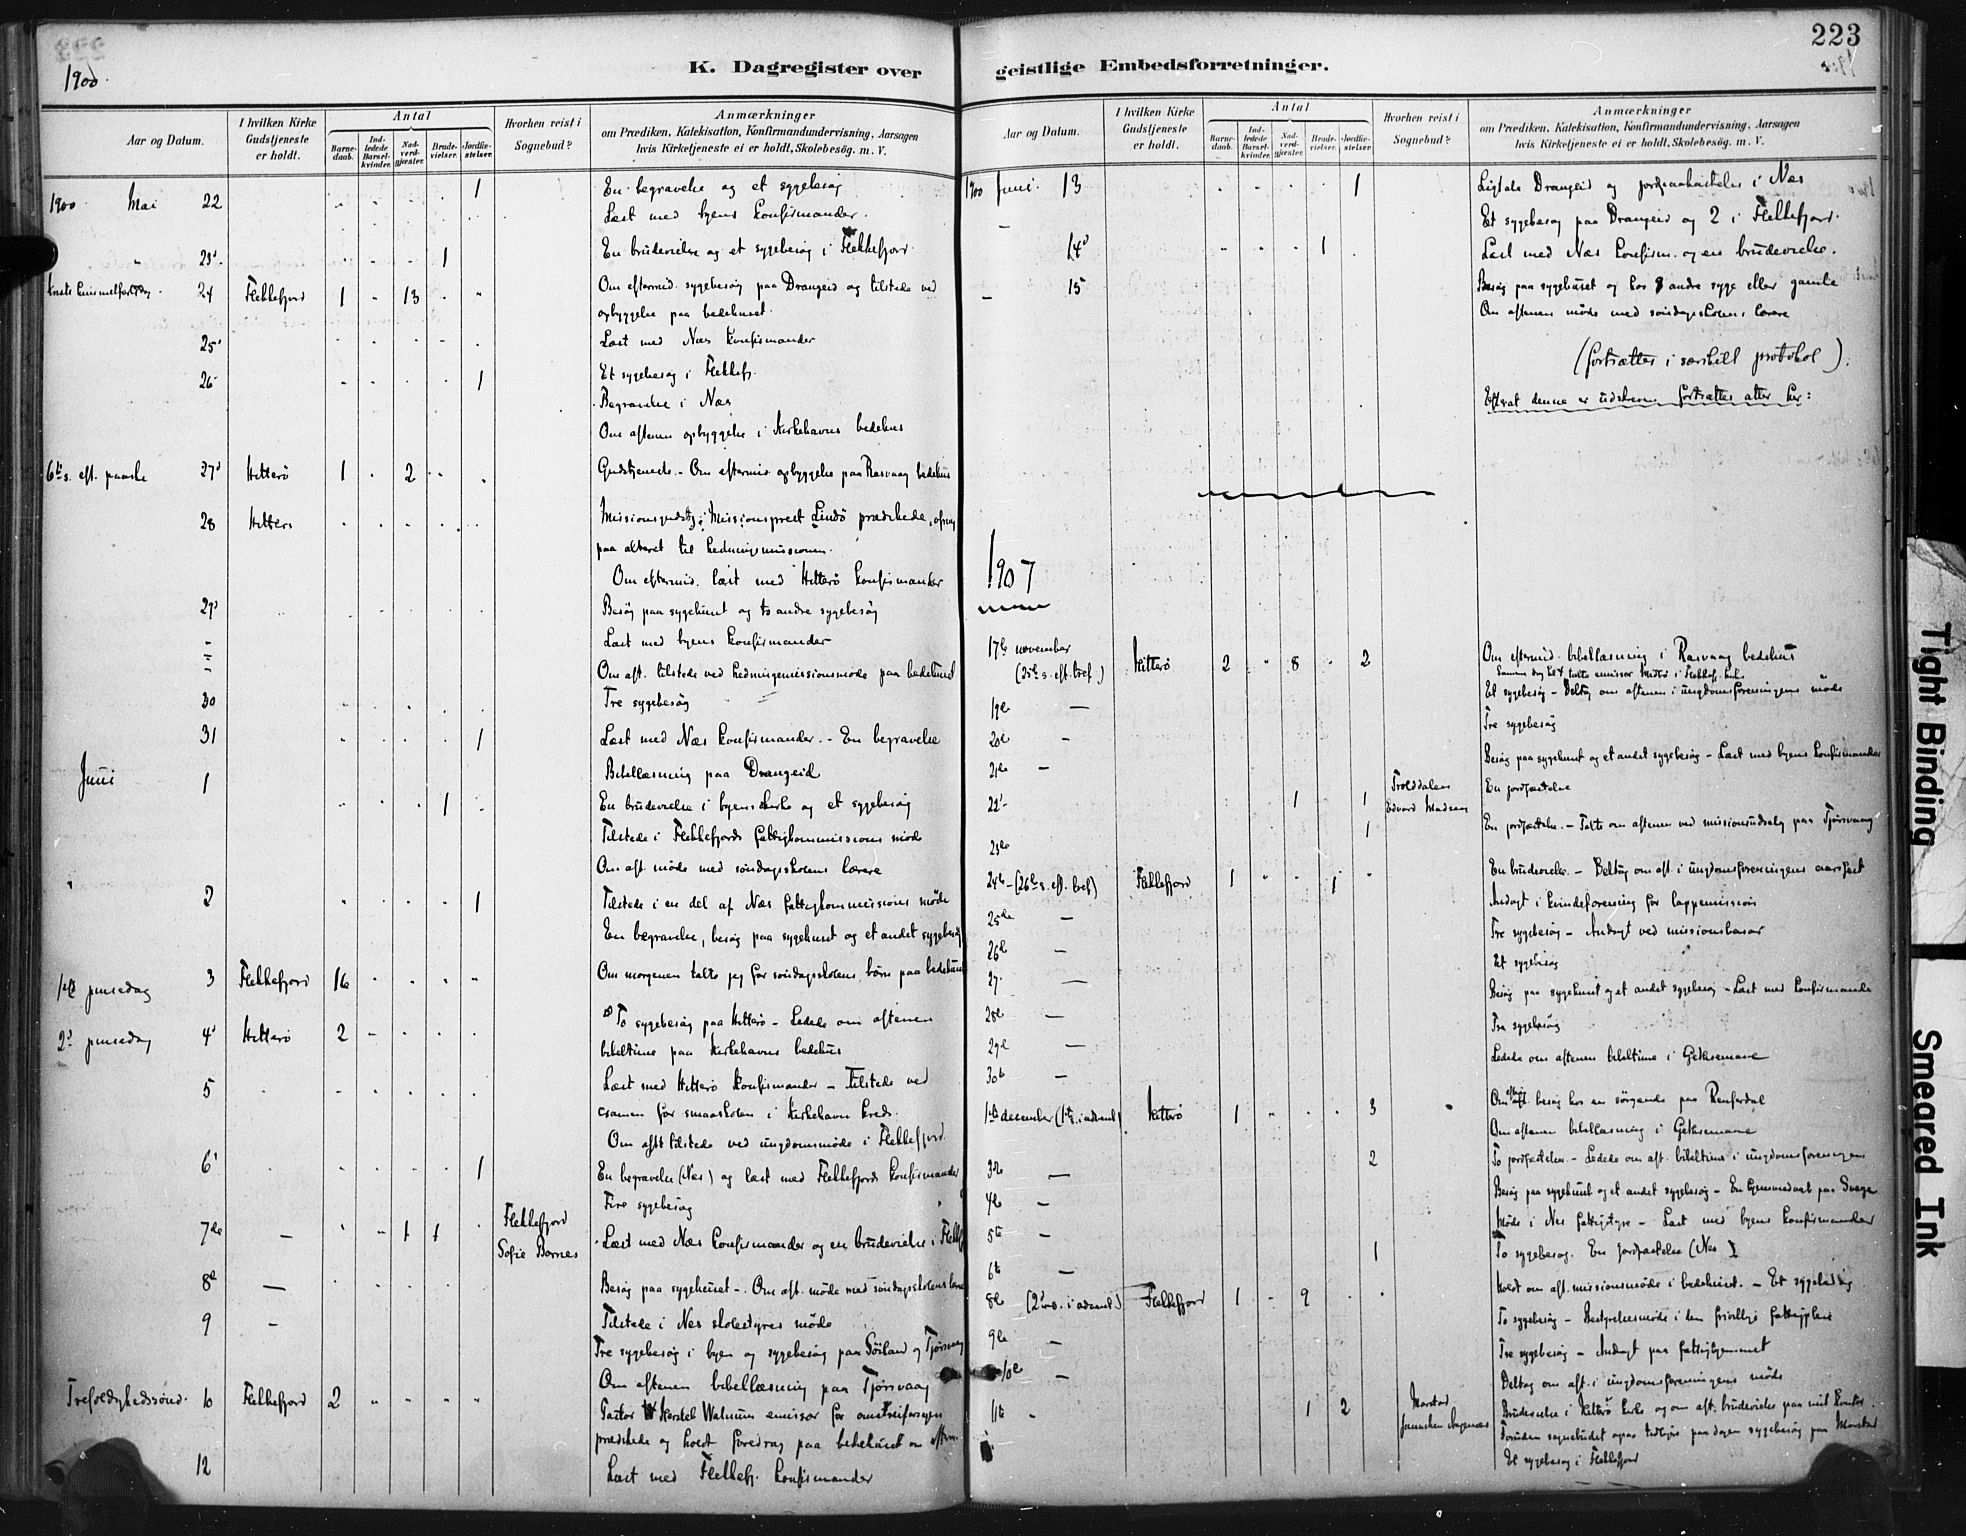 223
1900.
K. Dagregister over
geistlige Embedsforretninger.
Aar og Datum.
I hvilken Kirke Gudstjeneste er holdt.
Antal
Barne-daab.
Ind-ledede Barsel-kvinder.
Nad-verd-gjæster.
Brude-vielser.
Jordfæ-stelser.
Hvorhen reist i Sognebud?
Anmærkninger
om Prædiken, Katekisation, Konfirmandundervisning, Aarsagen
hvis Kirketjeneste ei er holdt, Skolebesøg. m. V.
1900 Mai 22 1 En begravelse og et sygebesøg
Læst med byens konfirmander.
23' 1 En brudevielse og et sygebesøg i Flekkefjord
24 Flekkefjord 1 13 Om eftermid. sygebesøg paa Drangeid og tilstede ved
opbyggelse paa bedehuset.
25' Læst med Næs konfirmander
26 1 Et sygebesøg i Flekkefj.
Begravelse i Næs
Om aftenen opbyggelse i Kirkehavns bedehus
6te s. eft. paaske 27' Hitterö 1 2 Gudstjeneste. - Om eftermid. opbyggelse paa Rasvaag bedehus
28 Hitterö Missionsprest Lindö prædikede,
paa alteret til hedningmissionen.
Om eftermid. læst med Hitterö konfirmander
29' Besøg paa sygehuset og to andre sygebesøg
Læst med byens konfirmander
Om aft. tilstede ved hedningemissionsmøde paa bedehuset
30 Tre sygebesøg
31 1 Læst med Næs konfirmander. - En begravelse
Juni 1 Bibellæsning paa Drangeid
1 En brudevielse i byens kirke og et sygebesøg
Tilstede i Flekkefjords fattigkommissions møde
Om aft. møde med søndagsskolens lærere
2 1 Tilstede i en del af Næs fattigkommissions møde
En begravelse, besøg paa sygehuset og et andet sygebesøg
1ste pinsedag 3 Flekkefjord 16 Om morgenen talte jeg for søndagsskolens børn paa bedehuset
2' pinsedag 4' Hitterö 2 To sygebesøg paa Hitterö - Ledede om aftenen
bibeltime paa Kirkehavns bedehus
5 Læst med Hitterö konfirmander - Tilstede ved
examen for smaaskolen i Kirkehavn kreds.
Om aft. tilstede ved ungdomsmøde i Flekkefjord.
6' 1 En begravelse (Næs) og læst med Flekkefjords konfirmander
Fire sygebesøg
7de - 1 1 Flekkefjord Sofie Barnes Læst med Næs konfirmander og en brudevielse i Flekkef
8de - Besøg paa sygehuset - Om aft. møde med søndagsskolens
9 - Tilstede i Nes skolestyres møde
Tre sygebesøg i byen og sygebesøg paa Söiland og Tjørsvaag
Om aftenen bibellæsning paa Tjørsvaag
Trefoldighedssønd. 10 Flekkefjord 2 emissær for
prædikede og holdt foredrag paa bedehuset om efterm.
12 Læst med Flekkefj. konfirmander
Aar og Datum.
I hvilken Kirke Gudstjeneste er holdt.
Antal
Barne-daab.
Ind-ledede Barsel-kvinder.
Nad-verd-gjæster.
Brude-vielser.
Jordfæ-stelser.
Hvorhen reist i Sognebud?
Anmærkninger
om Prædiken, Katekisation, Konfirmandundervisning, Aarsagen
hvis Kirketjeneste ei er holdt, Skolebesøg. m. V.
1900 Juni. 13 1 Drangeid og jordpaakastelse i Næs
Et sygebesøg paa Drangeid og 2 i Flekkefjord.
14' 1 Læst med Næs konfirm. og en brudevielse.
15 Besøg paa sygehuset og hos 8 andre syge eller gamle
Om aftenen møde med søndagsskolens lærere
(fortsættes i særskilt protokol).
Efterat denne er udskreven fortsættes atter her:
1907
17de november
(25de s. eft. tref.) Hitterö 2 8 2 Om eftermid. bibellæsning i Rasvaag bedehus
Et sygebesøg - Deltog om aftenen i ungdomsforeningens møde
19de - Tre sygebesøg
20de - Besøg paa sygehuset og et andet sygebesøg - Læst med byens konfirmander
21de - En jordfæstelse
22' - 1 1 Trolddalen Edvard Madsen
1 En jordfæstelse. - Talte om aftenen ved missionsudsalg paa Tjørsvaag
23de
24de - (26de s. eft. tref) Flekkefjord 1 1 En brudevielse. - Deltog om aft. i ungdomsforeningens aarsfest
25de - Andagt i kvindeforening for lappemission
26de - Tre sygebesøg - Andagt ved missionsbasar
27. - Et sygebesøg
28de - Besøg paa sygehuset og et andet sygebesøg - Læst med konfirmander
29de - Tre sygebesøg
30te - Ledede om aftenen bibeltime i Getsemane
1ste december (1ste s. i advent) Hitterö 1 3 besøg hos en sørgende paa
Om aftenen bibellæsning i Getsemane
3de - 2 To jordfæstelser. - Ledede om aft. bibeltime i ungdomsforeningen
4de - Besøg paa sygehuset og et andet sygebesøg -
5te - Møde i Nes fattigstyre - Læst med byens konfirmander
6te - 1 To sygebesøg. En jordfæstelse (Nes)
8de (2den s. i advent) Flekkefjord 1 9 Holdt om aft. missionsmøde i bedehuset. - Et sygebesøg
9de - To sygebesøg - Bestyrelsesmøde i den frivillige fattigpleie
10de - Tre sygebesøg - Andagt paa fattighjemmet
Deltog om aft. i ungdomsforeningens møde
11te - 1 2 Brudevielse i Hitterö kirke og om aft. brudevielse paa mit kontor.
Foruden sognebudet sygebesøg paa
Et sygebesøg i Flekkefjord
Tight Binding
Smeared Ink